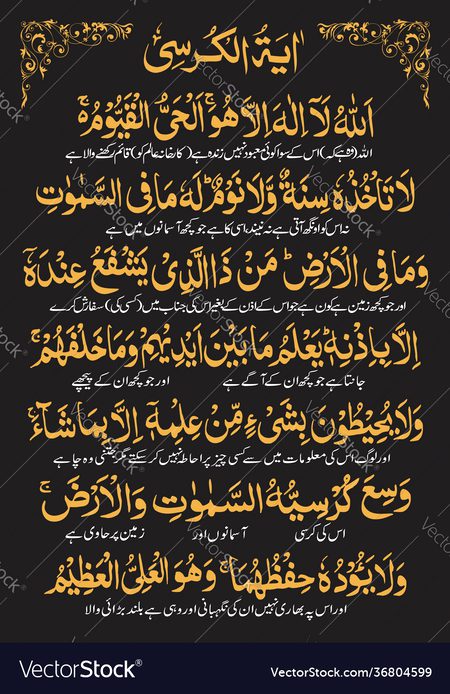 اٰیَۃُ الْکُرسِیْ
اَللّٰهُ لَاۤ اِلٰهَ اِلَّا هُوَۚ اَلْحَیُّ الْقَیُّوْمُ۬ۚ
اللہ (وہ ہے کہ) اس کے سوا کوئی معبود نہیں زندہ ہے (کارخانہ عالم کو) قائم رکھنے والا ہے
لَا تَاْخُذُهٗ سِنَةٌ وَّلَا نَوْمٌؕ لَهٗ مَا فِی السَّمٰوٰتِ
نہ اس کو اونگھ آتی ہے نہ نیند، اسی کا ہے جو کچھ آسمانوں میں ہے
وَمَا فِی الْاَرْضِؕ مَنْ ذَا الَّذِیْ یَشْفَعُ عِنْدَهٗۤ
اور جو کچھ زمین ہے کون ہے جو اس کے اذن کے بغیر اس کی جناب میں (کسی کی) سفارش کرے
اِلَّا بِاِذْنِهٖؕ یَعْلَمُ مَا بَیْنَ اَیْدِیْهِمْ وَمَا خَلْفَهُمْۚ
جانتا ہے جو کچھ ان کے آگے ہے اور جو کچھ ان کے پیچھے
وَلَا یُحِیْطُوْنَ بِشَیْءٍ مِّنْ عِلْمِهٖۤ اِلَّا بِمَا شَآءَۚ
اور لوگ اس کی معلومات میں سے کسی چیز پر احاطہ نہیں کر سکتے مگر جتنی وہ چاہے
وَسِعَ كُرْسِیُّهُ السَّمٰوٰتِ وَالْاَرْضَۚ
اس کی کرسی آسمانوں اور زمین پر حاوی ہے
وَلَا یَـُٔوْدُهٗ حِفْظُهُمَاۚ وَهُوَ الْعَلِیُّ الْعَظِیْمُ
اور اس پہ بھاری نہیں ان کی نگہبانی اور وہی ہے بلند بڑائی والا
VectorStock®
VectorStock.com/36804599